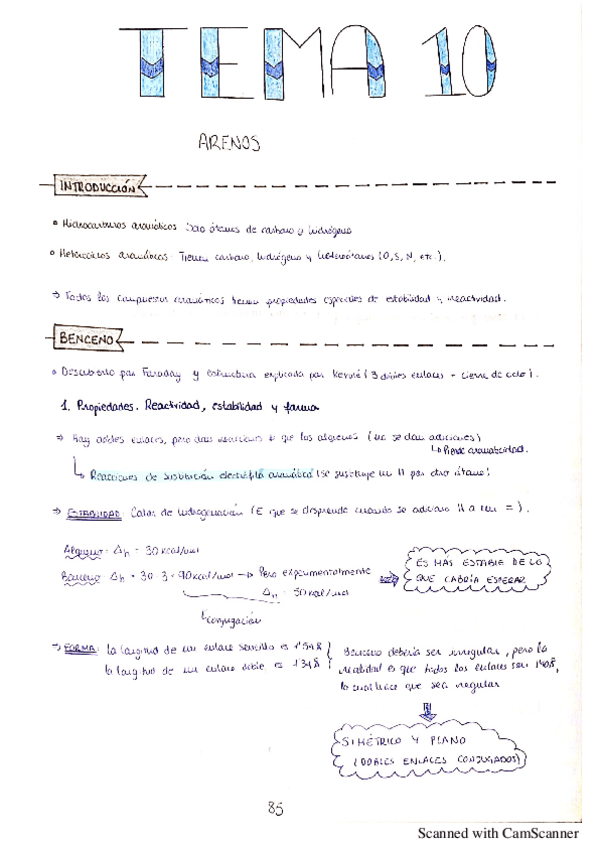 TEMA 10
ARENOS
INTRODUCCIÓN
• Hidrocarburos aromáticos: Solo átomos de carbono e hidrógeno
• Heterociclos aromáticos: Tienen carbono, hidrógeno y heteroátomos (O, S, N, etc.).
⇒ Todos los compuestos aromáticos tienen propiedades especiales de estabilidad y reactividad.
BENCENO
• Descubierto por Faraday y estructura explicada por Kekulé (3 dobles enlaces + cierre de ciclo).
1. Propiedades. Reactividad, estabilidad y forma
⇒ Hay dobles enlaces, pero dan reacciones ≠ que los alquenos (no se dan adiciones)
↳ Pierde aromaticidad.
↳ Reacciones de sustitución electrófila aromática (se sustituye un H por otro átomo)
⇒ ESTABILIDAD: Calor de hidrogenación (E que se desprende cuando se adiciona H a un =).
Alqueno: Δh = 30 kcal/mol
Benceno: Δh = 30·3 = 90 kcal/mol → Pero experimentalmente
Δh = 50 kcal/mol
↳ conjugación
ES MÁS ESTABLE DE LO
QUE CABRÍA ESPERAR
⇒ FORMA: la longitud de un enlace sencillo es 1'54Å
la longitud de un enlace doble es 1'34Å
Benceno debería ser irregular, pero la
realidad es que todos los enlaces son
lo cual hace que sea regular
SIMÉTRICO Y PLANO
(DOBLES ENLACES CONJUGADOS)
85
Scanned with CamScanner